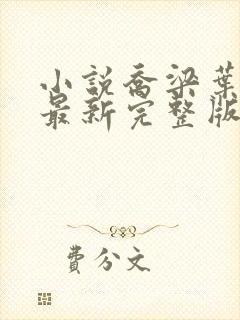 小説喬梁葉
最新完整版
費分文